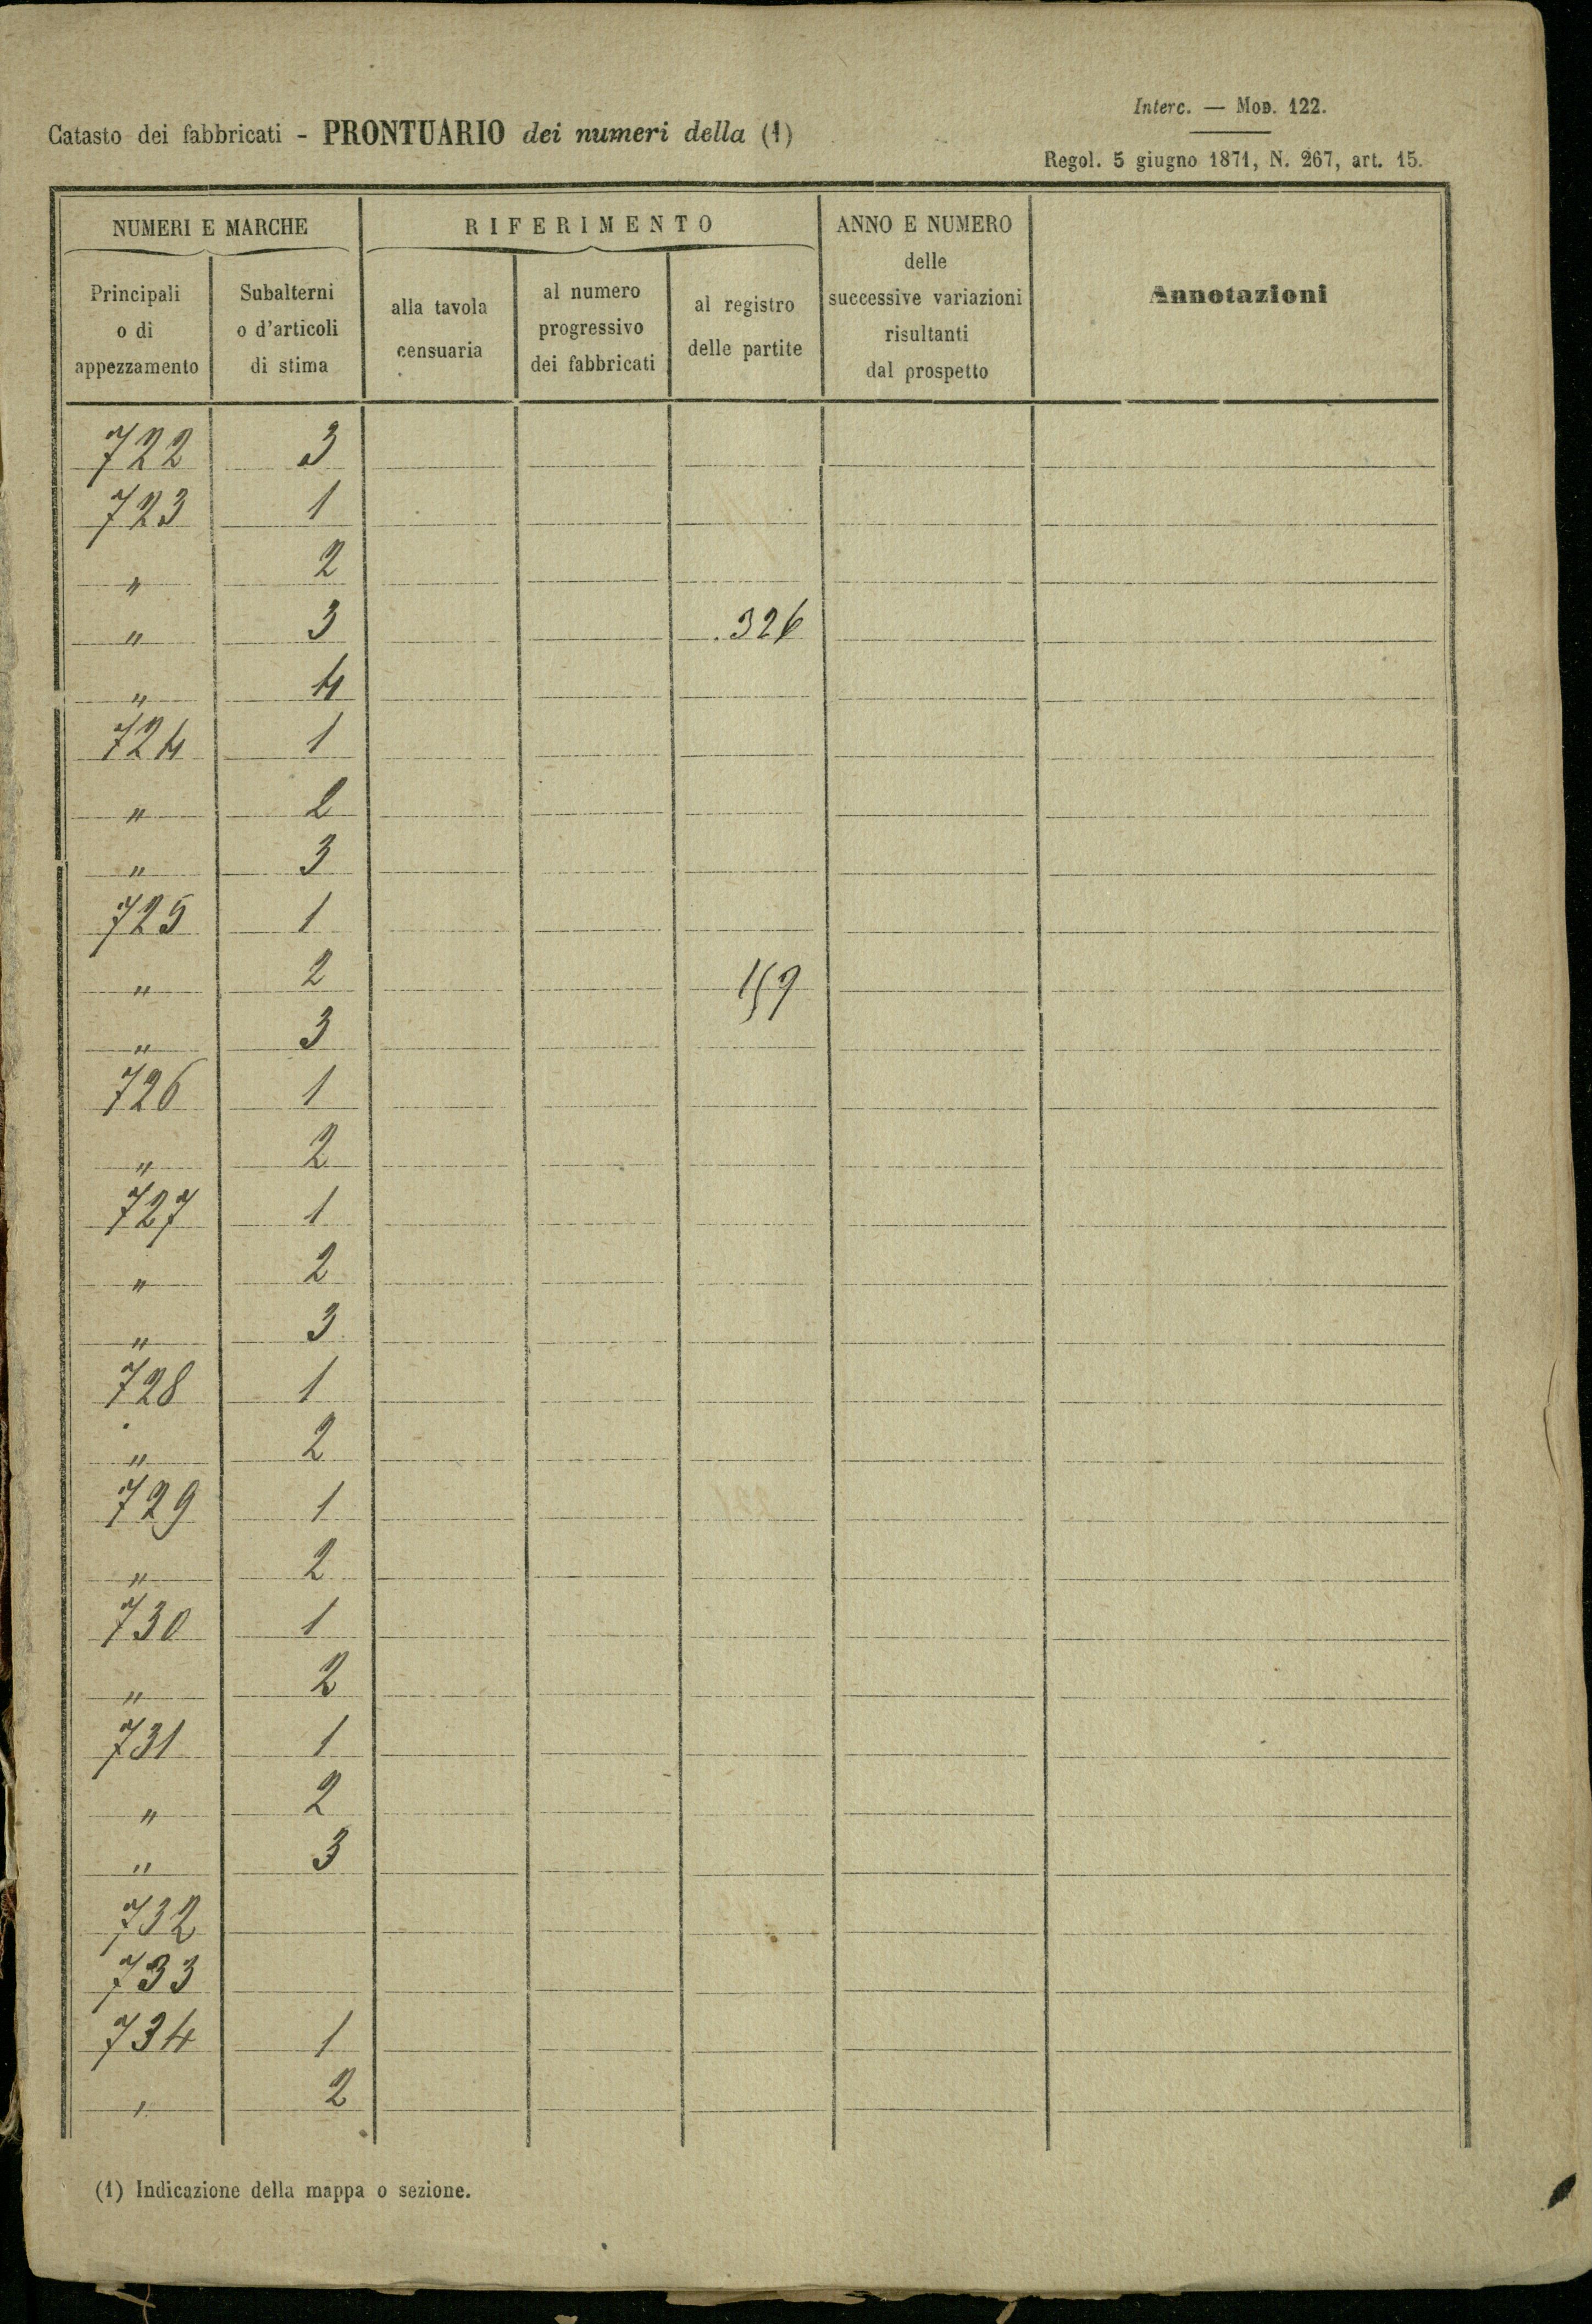 Interc. — Mod. 122.
Catasto dei fabbricati - PRONTUARIO dei numeri della (1)
Regol. 5 giugno 1871, N. 267, art. 15.
NUMERI E MARCHE
RIFERIMENTO
ANNO E NUMERO
delle
successive variazioni
risultanti
dal prospetto
Annotazioni
Principali
o di
appezzamento
Subalterni
o d'articoli
di stima
alla tavola
censuaria
al numero
progressivo
dei fabbricati
al registro
delle partite
722 3
723 1
" 2
" 3 326
" 4
724 1
" 2
" 3
725 1
" 2 159
" 3
726 1
" 2
727 1
" 2
" 3
728 1
" 2
729 1
" 2
730 1
" 2
731 1
" 2
" 3
732
733
734 1
, 2
(1) Indicazione della mappa o sezione.